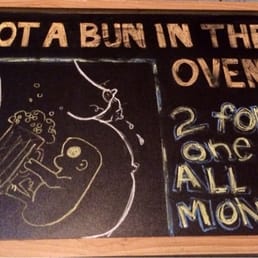 OT A BUN IN THE
OVEN
2 for
one
ALL
MON